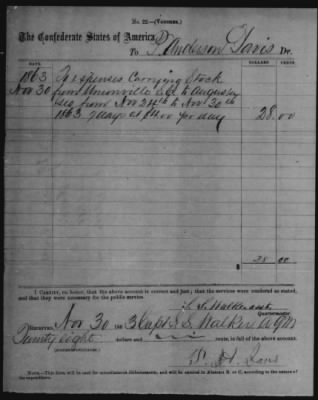 No. 22.—(Voucher.)
The Confederate States of America,
To P. Anderson Davis Dr.
DATE. DOLLARS CENTS.
1863 To expenses Carrying Stock
Nov 30 from Unionville to Augusta
Geo from Nov 24th to Nov 30th
1863 7 days at $4.00 per day 28.00
28 00
I Certify, on honor, that the above account is correct and just; that the services were rendered as stated,
and that they were necessary for the public service.
S. Walker
Quartermaster
Received Nov 30 1863 Capt S. Walker AQM
Twenty eight dollars and cents, in full of the above account.
(SIGNED DUPLICATES.)
P. A. Davis
NOTE.—This form will be used for miscellaneous disbursements, and will be entered in Abstract B. or C, according to the nature of
the expenditure.